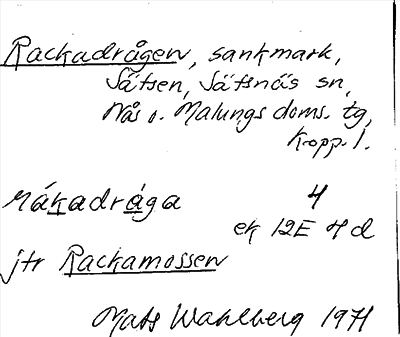 Rackadrågen, sankmark,
Sätsen, Sätsnäs sn,
Nås o. Malungs doms. tg,
Kopp. l.
rákadrága 4
ek 12E 4d
jtr Rackamossen
Mats Wahlberg 1971